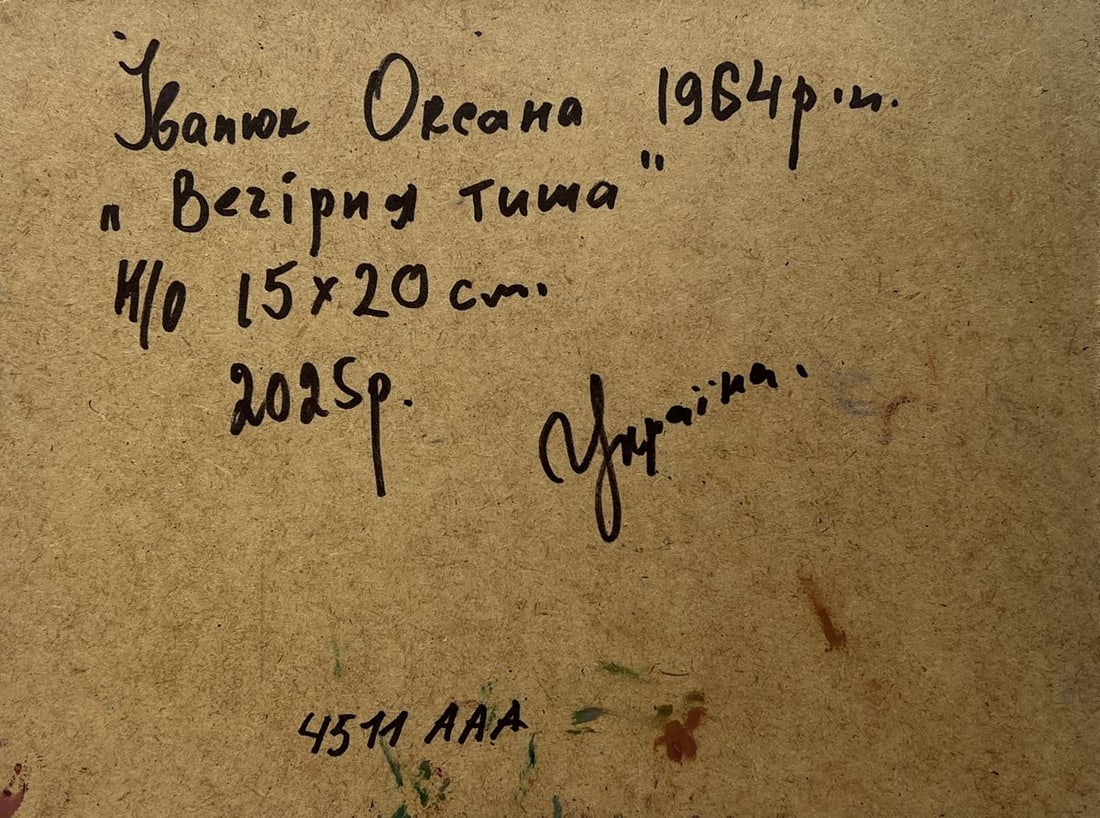 Іванюк Оксана 1964р.н.
„Вечірня тиша"
К/О 15х20 см.
2025р.
Україна.
4511 ААА